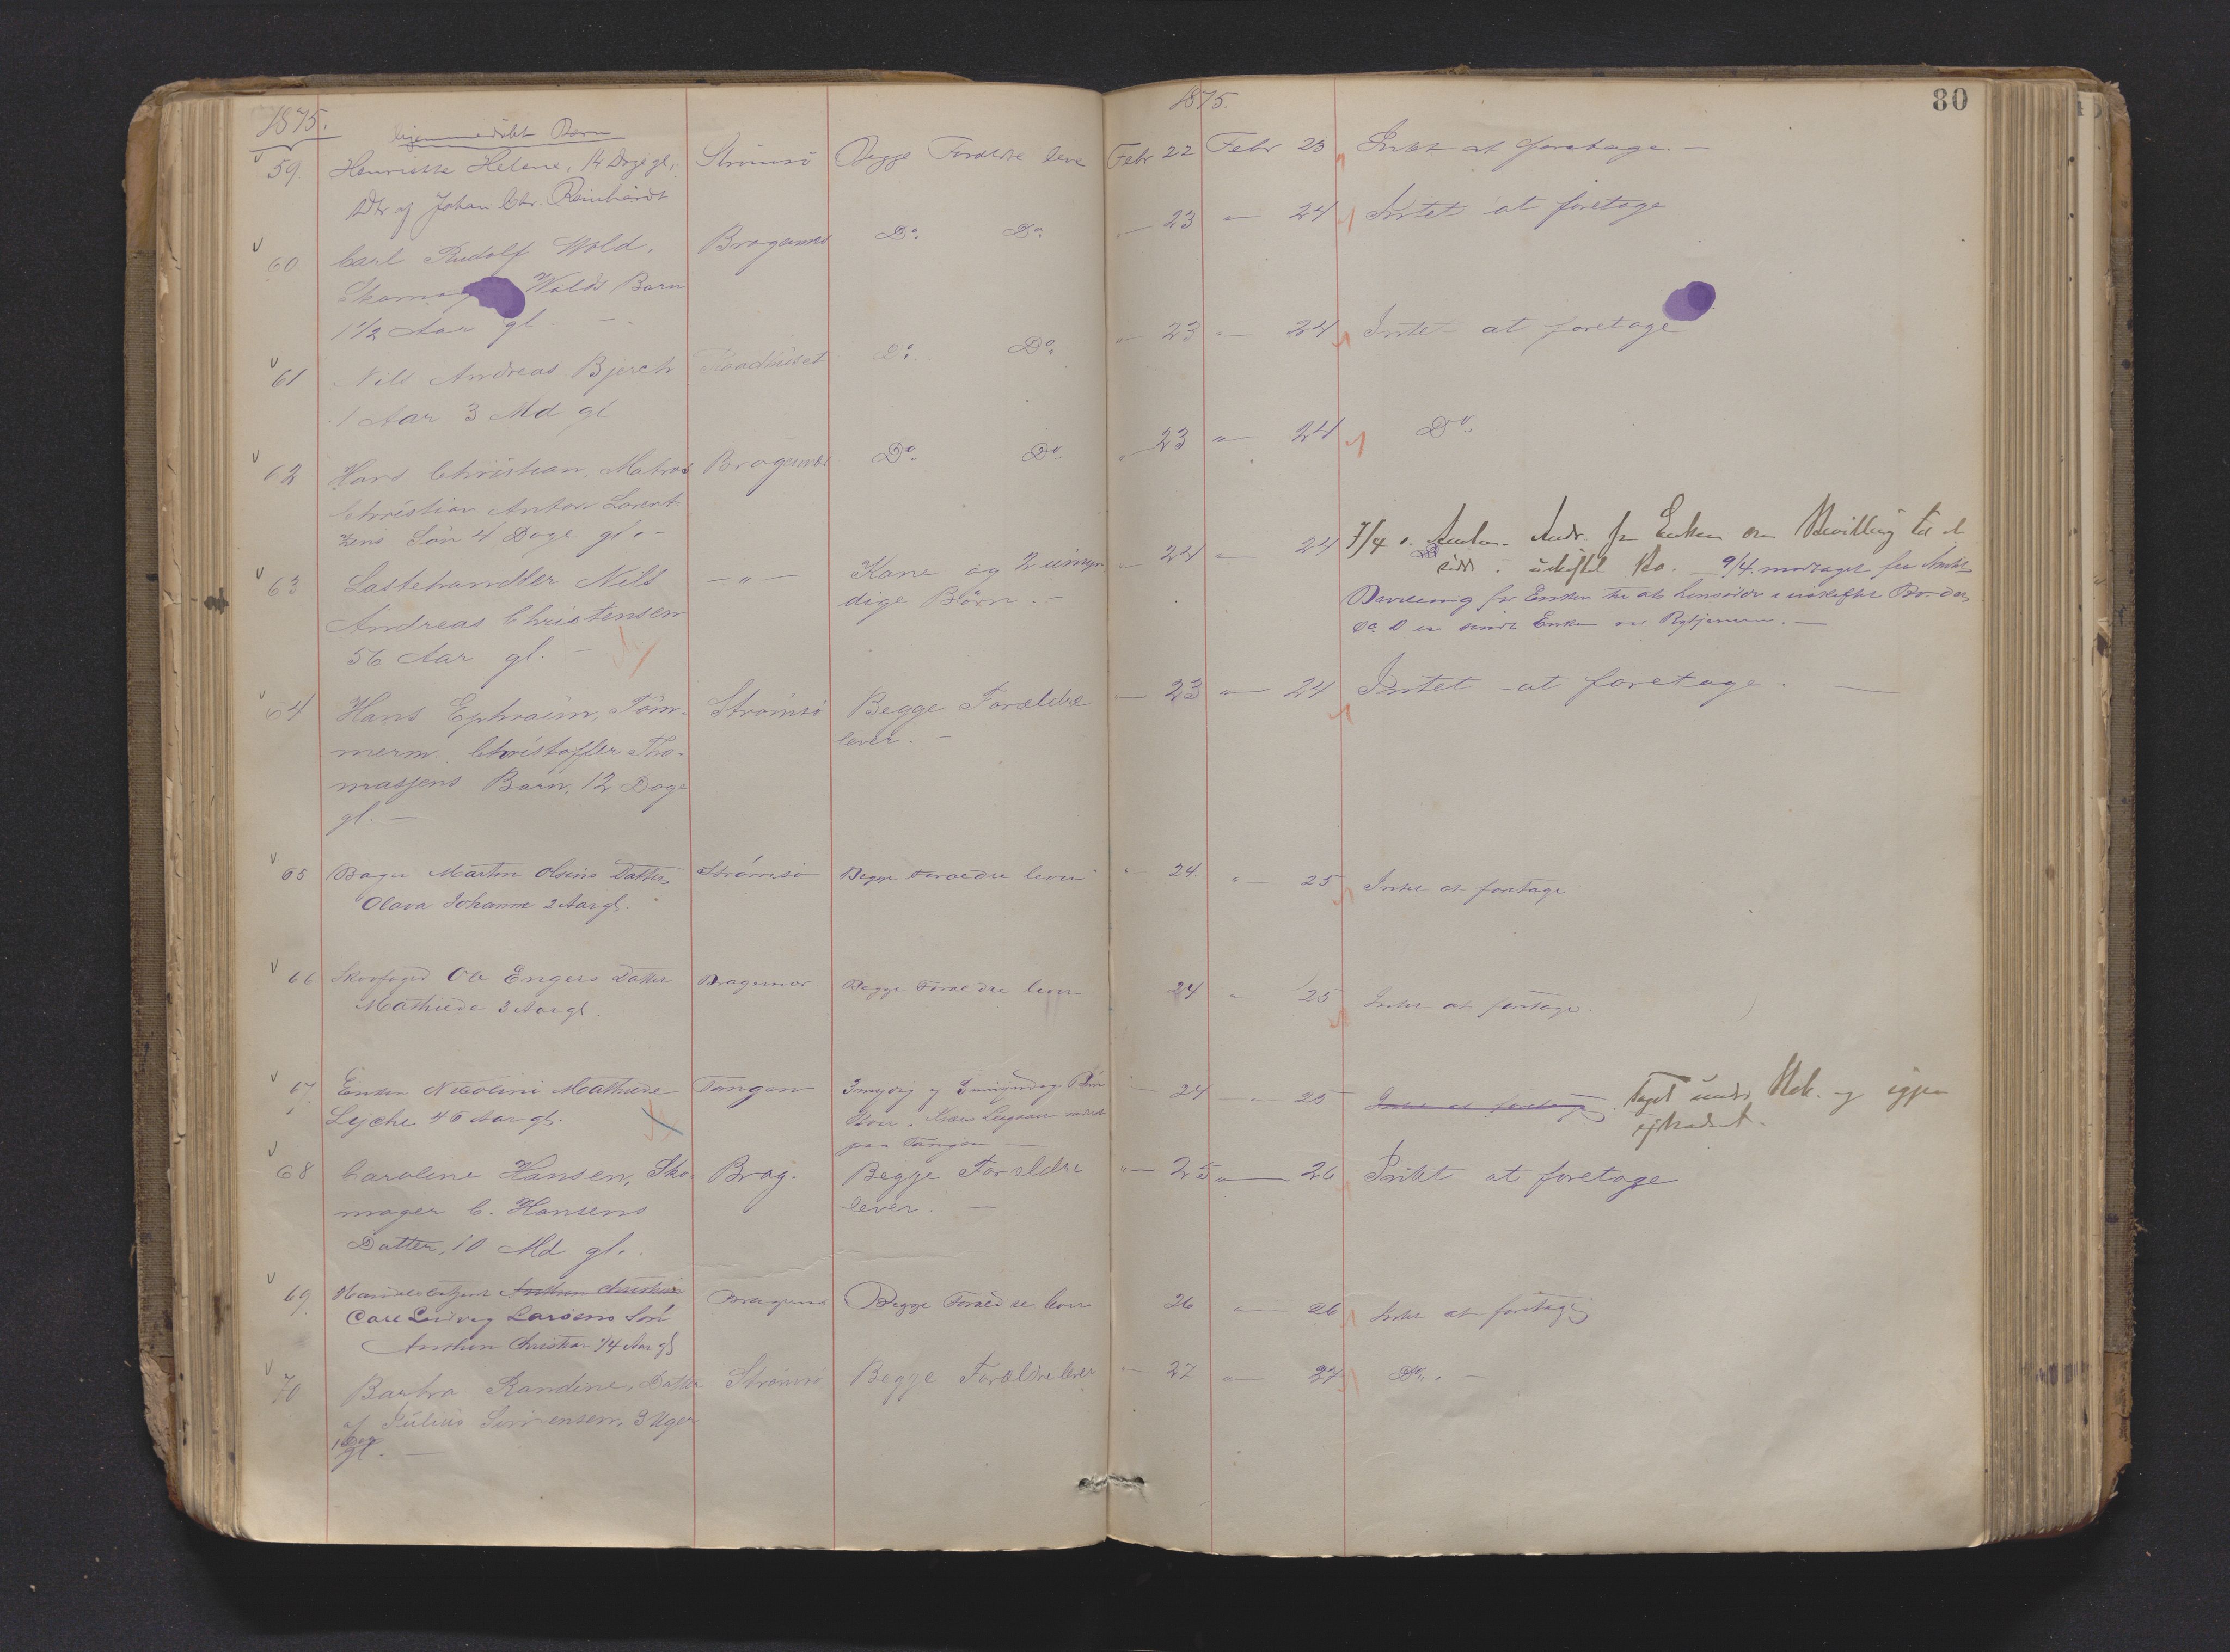 1875.
1875.
80
hjemmedøbt Barn
59. Henriette Helene, 14 Dage gl., Strømsø Begge Forældre leve Febr 22 Febr 23 Intet at foretage. —
Dtr af Johan Chr. Reinhardt
60 Carl Rudolf Wold, Bragernæs Do. Do. — 23 " 24 Intet at foretage
Wolds Barn
1 1/2 Aar gl. —
61 Nils Andreas Bjerch Raadhuset Do. Do. " 23 " 24 Intet at foretage
1 Aar 3 Md gl
62 Hans Christian, Matros Bragernæs Do. Do. " 23 " 24 Do.
Christian Anton Lorent-
zens Søn 4 Dage gl. —
7/4 Enken om Bevilling til at
63 Lastehandler Nils — " — Kone og 2 umyn- " 24 " 24 sidde i uskiftet Bo. — 9/4 modtaget fra Amtet
Andreas Christensen dige Børn. — Bevilling for Enken til at hensidde i uskiftet Bo
56 Aar gl. —
64 Hans Ephraim, Töm- Strömsö Begge Forældre — 23 " 24 Intet at foretage. —
merm. Christoffer Tho- lever. —
massens Barn, 12 Dage
gl. —
65 Bager Morten Olsens Datter Strömsö Begge Forældre lever " 24. " 25 Intet at foretage
Olava Johanne 2 Aar gl.
66 Skovfoged Ole Engers Datter Bragernæs Begge Forældre lever 24 " 25 Intet at foretage.
Mathilde 3 Aar gl.
67 Enken Nicoline Mathilde Tangen 3 myndig og 3 umyndige Börn — 24 — 25 Intet at foretage. Taget under Beh. og igjen
Lyche 46 Aar gl. extradert.
paa Tangen —
68 Caroline Hansen, Sko- Brag. Begge Forældre " 25 " 26 Intet at foretage
mager C. Hansens lever. —
Datter, 10 Md gl.
69. Handelsbetjent Anthon Christian Bragernæs Begge Forældre lever 26 " 26 Intet at foretage
Carl Ludvig Larsens Sön
Anthon Christian 1/4 Aar gl
70 Barbra Randine, Datter Strømsø Begge Forældre lever — 27 " 27 Do. —
af Julius Simensen, 3 Uger
1 Dag
gl. —